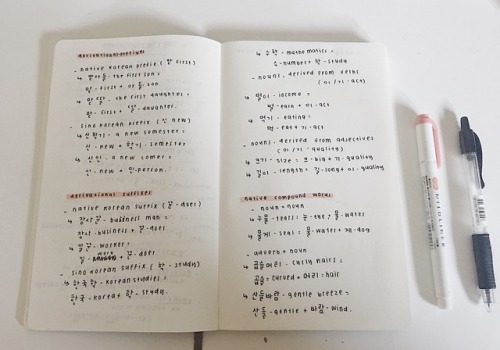 derivational prefixes
- native korean prefix ( 맏 first)
↳ 맏아들 - the first son =
맏 - first + 아들 - son
↳ 맏딸 - the first daughter =
맏 - first + 딸 - daughter.
- sino korean prefix ( 신 new)
↳ 신학기 - a new semester =
신 - new + 학기 - semester
↳ 신인 - a new comer =
신 - new + 인 - person.
derivational suffixes
- native korean suffix ( 꾼 - doer)
↳ 장사꾼 - business man =
장사 - business + 꾼 - doer
↳ 일꾼 - worker =
일 - work + 꾼 - doer
- sino korean suffix ( 학 - study)
↳ 한국학 - korean studies =
한국 - korea + 학 - study.
↳ 수학 - mathematics =
수 - number + 학 - study
- nouns, derived from verbs
( 이 / 기 - act)
↳ 벌이 - income =
벌 - earn + 이 - act
↳ 먹기 - eating =
먹 - eat + 기 - act
- nouns, derived from adjectives
( 이 / 기 - quality)
↳ 크기 - size = 크 - big + 기 - quality
↳ 길이 - length = 길 - long + 이 - quality
native compound words
- noun + noun
↳ 눈물 - tears = 눈 - eye, 물 - water
↳ 물개 - seal = 물 - water + 개 - dog
- adverb + noun
↳ 곱슬머리 - curly hairs =
곱슬 = curved + 머리 - hair
↳ 산들바람 - gentle breeze =
산들 - gentle + 바람 - wind.
MILDLINER